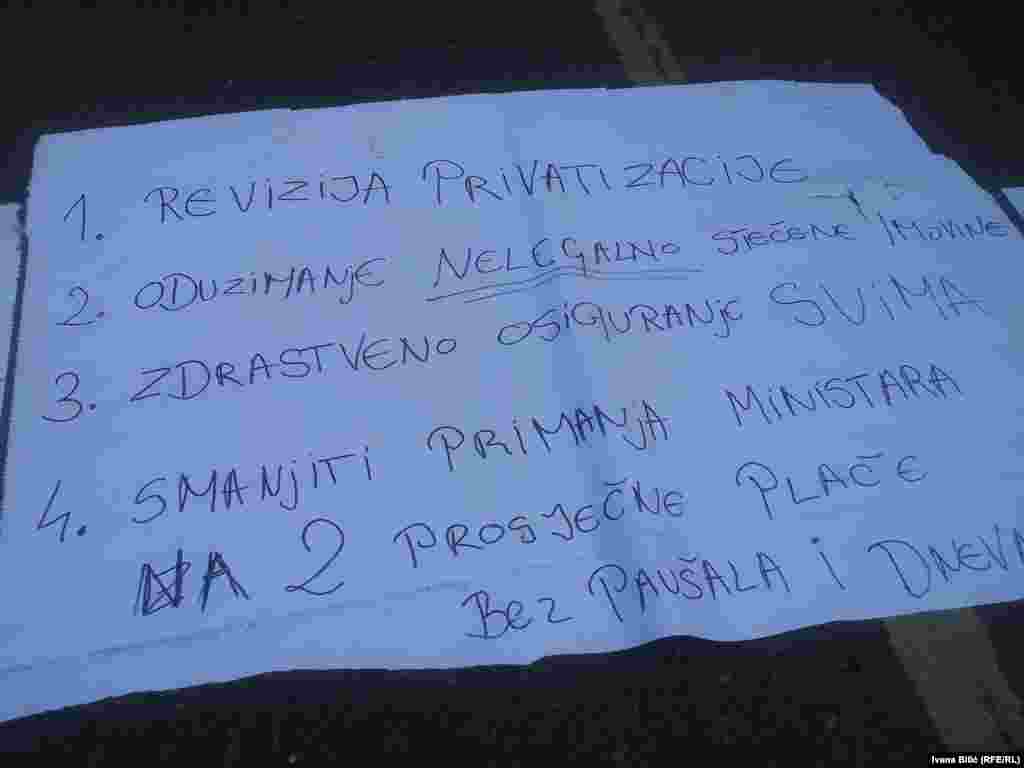 1. REVIZIJA PRIVATIZACIJE
2. ODUZIMANJE NELEGALNO STEČENE IMOVINE
3. ZDRASTVENO OSIGURANJE SVIMA
4. SMANJITI PRIMANJA MINISTARA
NA 2 PROSJEČNE PLAČE
BEZ PAUŠALA I DNEVA
Ivana Bilić (RFE/RL)